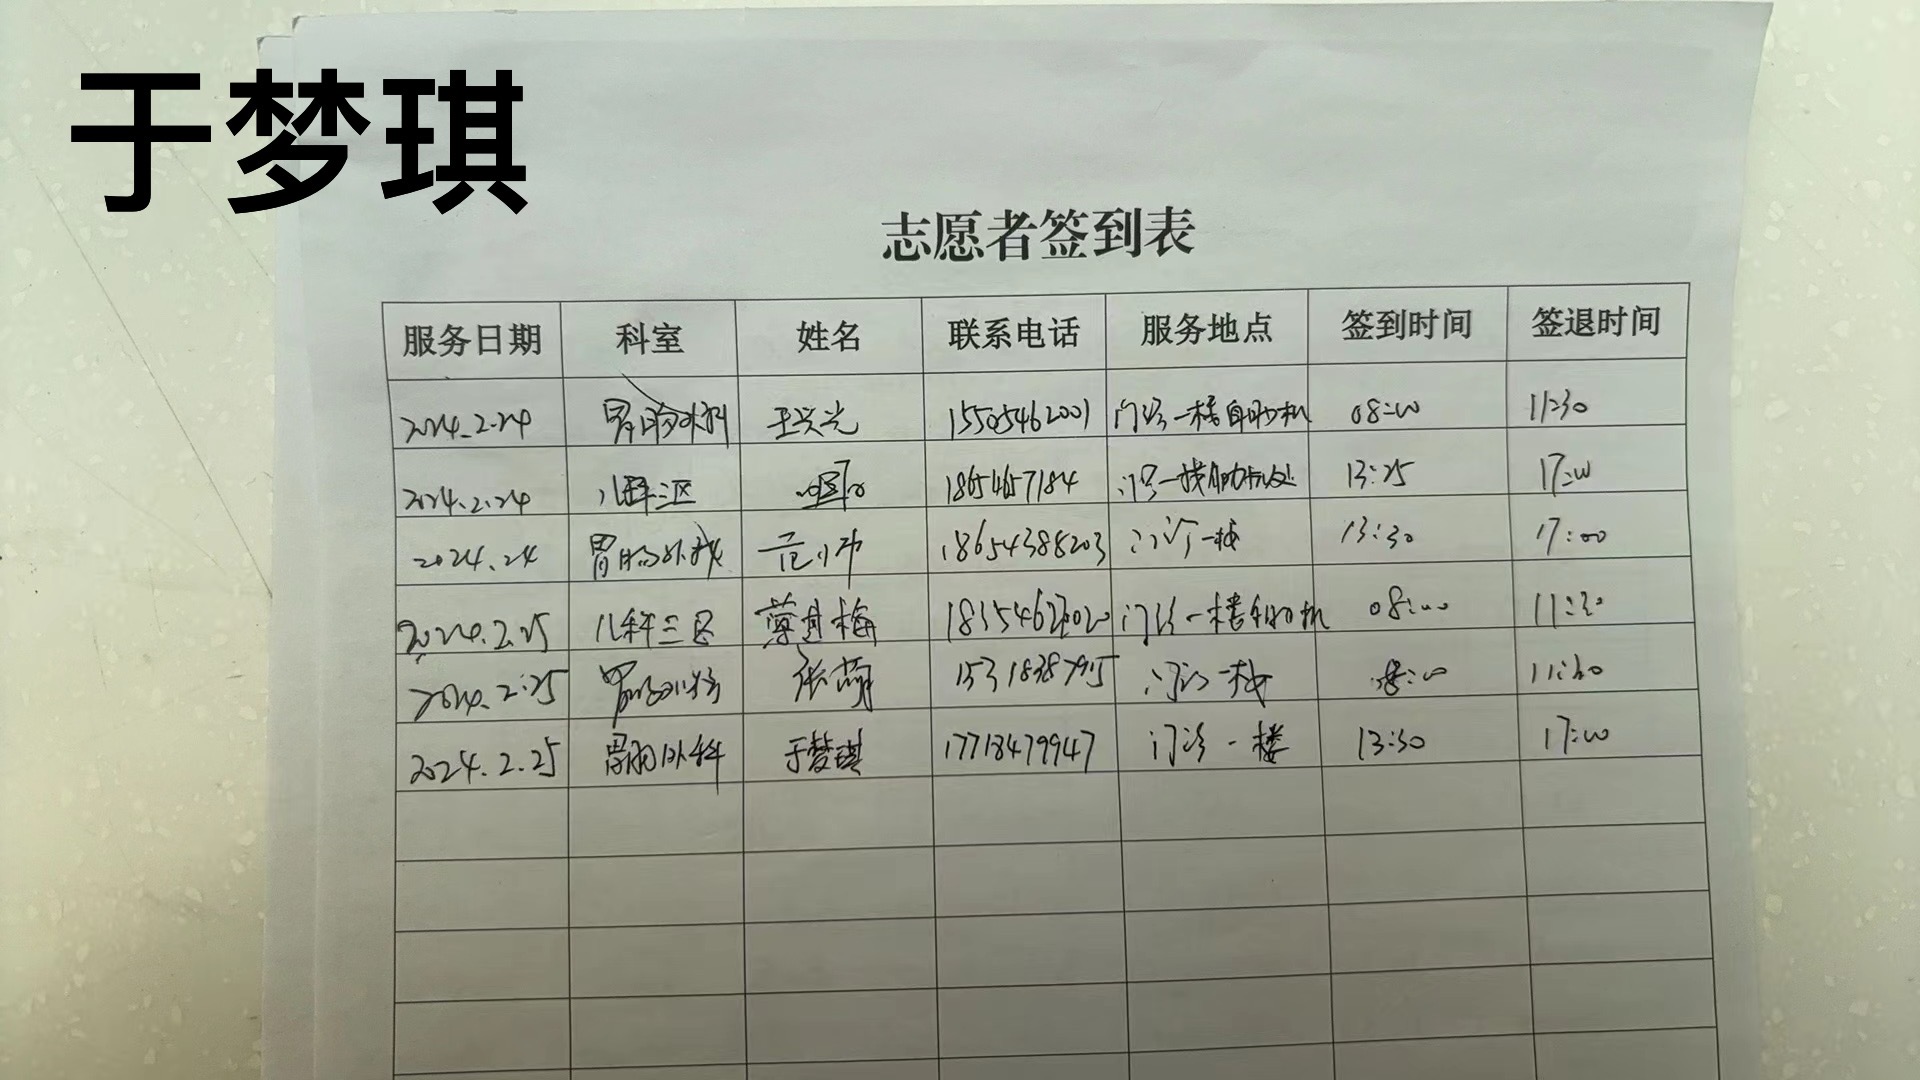 于梦琪
志愿者签到表
服务日期 科室 姓名 联系电话 服务地点 签到时间 签退时间
2024.2.24 胃肠外科 王兴光 15505462001 门诊一楼自助机 08:00 11:30
2024.2.24 儿科三区 1865 门诊一楼 13:25 17:00
2024.24 胃肠外科 范小冲 18654388203 门诊一楼 13:30 17:00
2024.2.25 儿科三区 薄其梅 门诊一楼自助机 08:00 11:30
2024.2.25 胃肠外科 张萌 15318387915 门诊一楼 8:00 11:30
2024.2.25 胃肠外科 于梦琪 17718479947 门诊一楼 13:30 17:00